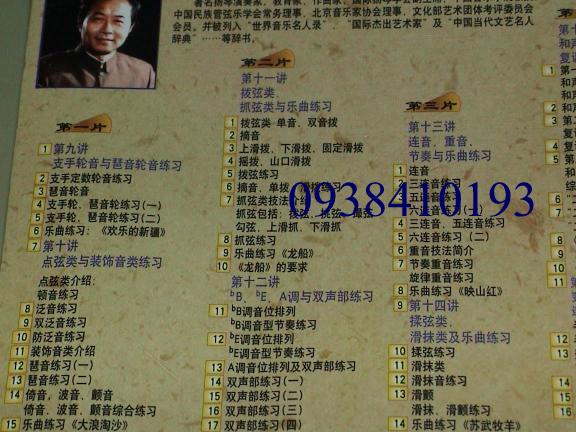 著名扬琴演奏家、教育家、作曲家、国际扬琴学会副主席、
中国民族管弦乐学会常务理事、北京音乐家协会理事、文化部艺术团体考评委员会
会员。并被列入“世界音乐名人录”、“国际杰出艺术家”及“中国当代文艺名人
辞典”……等辞书。
第一片
1 第九讲
支手轮音与琶音轮音练习
2 支手定数轮音练习
3 琶音轮音
4 支手轮、琶音轮练习(一)
5 支手轮、琶音轮练习(二)
6 乐曲练习:《欢乐的新疆》
7 第十讲
点弦类与装饰音类练习
点弦类介绍:
顿音练习
8 泛音练习
9 双泛音练习
10 防泛音练习
11 装饰音类介绍
12 琶音练习(一)
13 琶音练习(二)
14 倚音、波音、颤音
倚音、波音、颤音综合练习
15 乐曲练习《大浪淘沙》
第二片
第十一讲
拨弦类、
抓弦类与乐曲练习
1 拨弦类-单音、双音拨
2 摘音
3 上滑拨、下滑拨、固定滑拨
4 摇拨、山口滑拨
5 拨弦练习
6 摘音、单拨、滑拨练习
7 抓弦类技法介绍
抓弦包括:拨弦、抓弦、撮弦
勾弦、上滑抓、下滑抓
8 抓弦练习
9 乐曲练习《龙船》
10 《龙船》的要求
第十二讲
11 bB、bE、A调与双声部练习
bB调音位排列
bB调音型节奏练习
12 bE调音位排列
bE调音型节奏练习
13 A调音位排列及双声部练习
14 双声部练习(一)
15 双声部练习(二)
16 双声部练习(三)
17 双声部练习(四)
第三片
第十三讲
连音、重音、
节奏与乐曲练习
1 连音
2 三连音练习
3 五连音练习
六连音练习(一)
4 三连音、五连音练习
5 六连音练习(二)
6 重音技法简介
7 节奏重音练习
旋律重音练习
8 乐曲练习《映山红》
9 第十四讲
揉弦类、
滑抹类及乐曲练习
10 揉弦练习
11 滑抹类
12 滑抹音练习
13 滑颤
滑抹、滑颤练习
14 乐曲练习《苏武牧羊》
0938410193